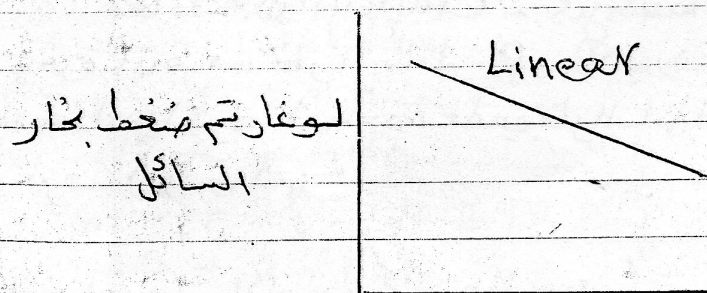 Linear
لوغارتم ضغط بخار
السائل